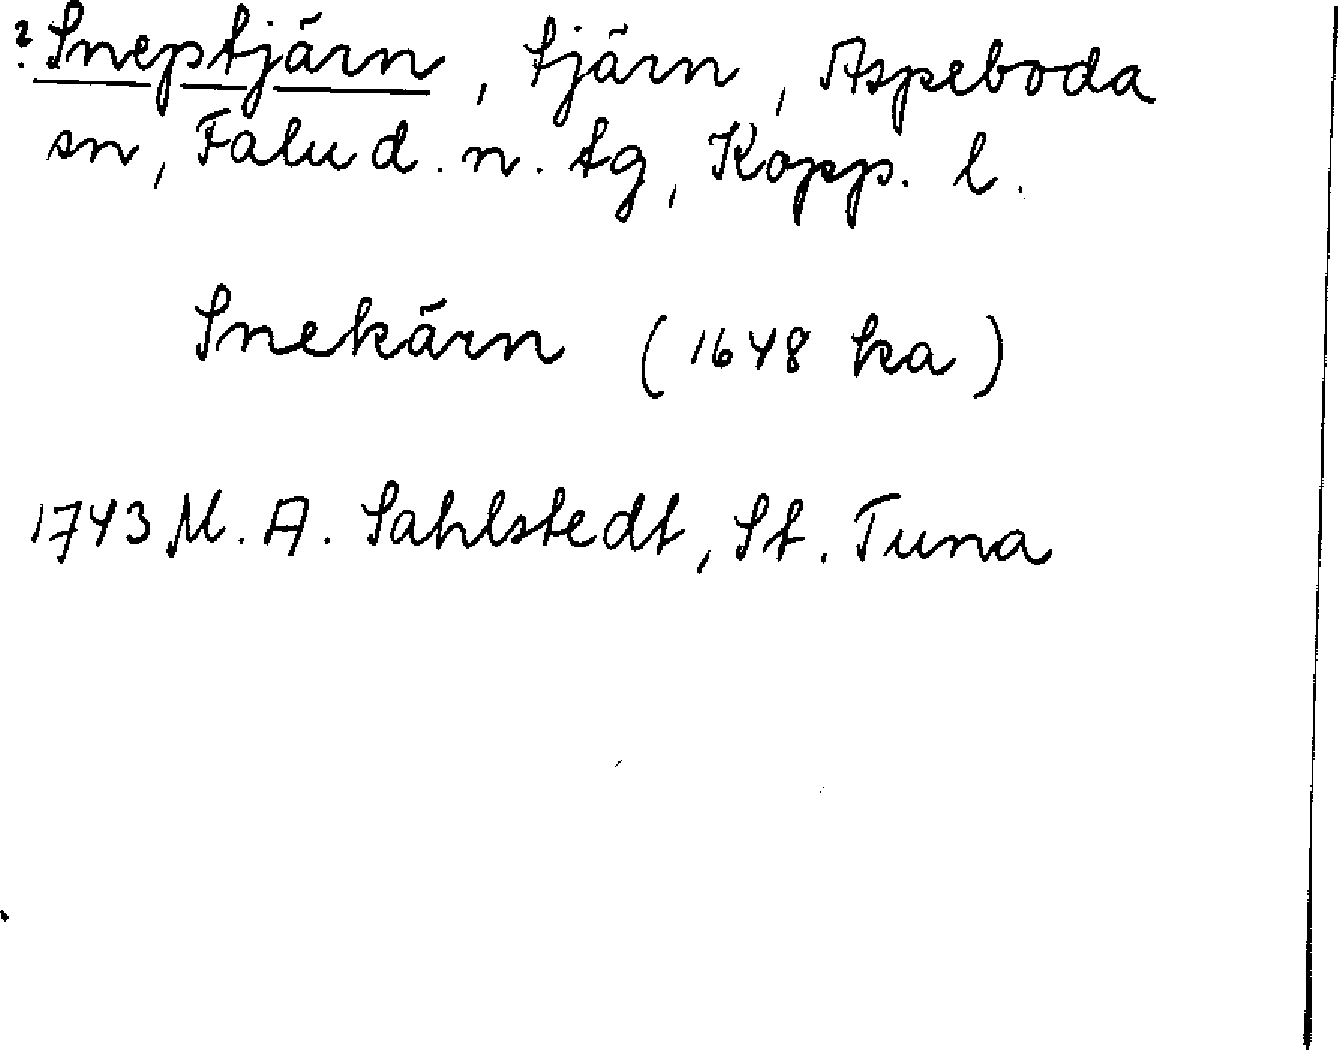 ? Sneptjärn, tjärn, Aspeboda
sn, Falu d. n. tg, Kopp. l.
Snekärn (1648 ka)
1743 M. A. Sahlstedt, St. Tuna